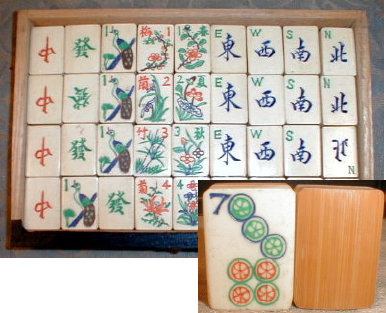 中 發 1 梅 1 1 春 E 東 W 西 S 南 N 北
中 發 1 蘭 2 2 夏 E 東 W 西 S 南 N 北
中 發 1 竹 3 3 秋 E 東 W 西 S 南 N 北
中 1 發 菊 4 4
7